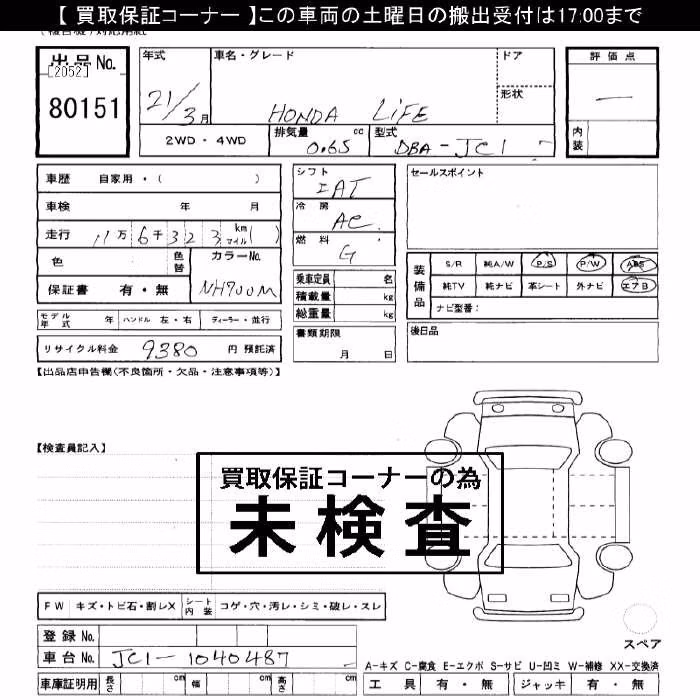 【 買取保証コーナー 】この車両の土曜日の搬出受付は17:00まで
出品 No.
[2052]
80151
年式
21/3月
車名・グレード
HONDA LiFE
ドア
形状
評価点
—
内装
2WD・4WD
排気量 cc
0.65
型式
DBA-JC1
車歴 自家用・( )
車検 年 月
走行 11万6千323 km マイル( )
色
色替
カラーNo.
NH700M
保証書 有・無
モデル年式 年 ハンドル 左・右 ディーラー・並行
リサイクル料金 9380 円 預託済
シフト
IAT
冷房
AC
燃料
G
乗車定員 名
積載量 kg
総重量 kg
書類期限
月 日
セールスポイント
装備品
S/R 純A/W P/S P/W ABS
純TV 純ナビ 革シート 外ナビ エアB
ナビ型番:
後日品
【出品店申告欄(不良箇所・欠品・注意事項等)】
【検査員記入】
買取保証コーナーの為
未検査
FW キズ・トビ石・割レX
シート内装 コゲ・穴・汚レ・シミ・破レ・スレ
登録 No.
車台 No. JC1-1040487
車庫証明用 長さ cm 幅 cm 高さ cm
スペア
A-キズ C-腐食 E-エクボ S-サビ U-凹ミ W-補修 XX-交換済
工具 有・無 ジャッキ 有・無